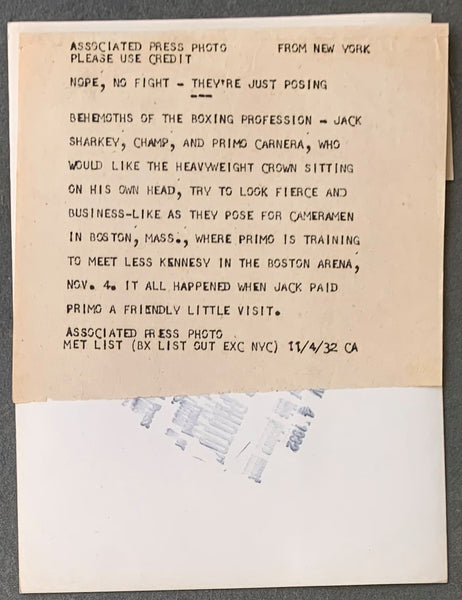 ASSOCIATED PRESS PHOTO FROM NEW YORK
PLEASE USE CREDIT
NOPE, NO FIGHT - THEY'RE JUST POSING
BEHEMOTHS OF THE BOXING PROFESSION - JACK
SHARKEY, CHAMP, AND PRIMO CARNERA, WHO
WOULD LIKE THE HEAVYWEIGHT CROWN SITTING
ON HIS OWN HEAD, TRY TO LOOK FIERCE AND
BUSINESS-LIKE AS THEY POSE FOR CAMERAMEN
IN BOSTON, MASS., WHERE PRIMO IS TRAINING
TO MEET LESS KENNESY IN THE BOSTON ARENA,
NOV. 4. IT ALL HAPPENED WHEN JACK PAID
PRIMO A FRIENDLY LITTLE VISIT.
ASSOCIATED PRESS PHOTO
MET LIST (BX LIST OUT EXC NYC) 11/4/32 CA